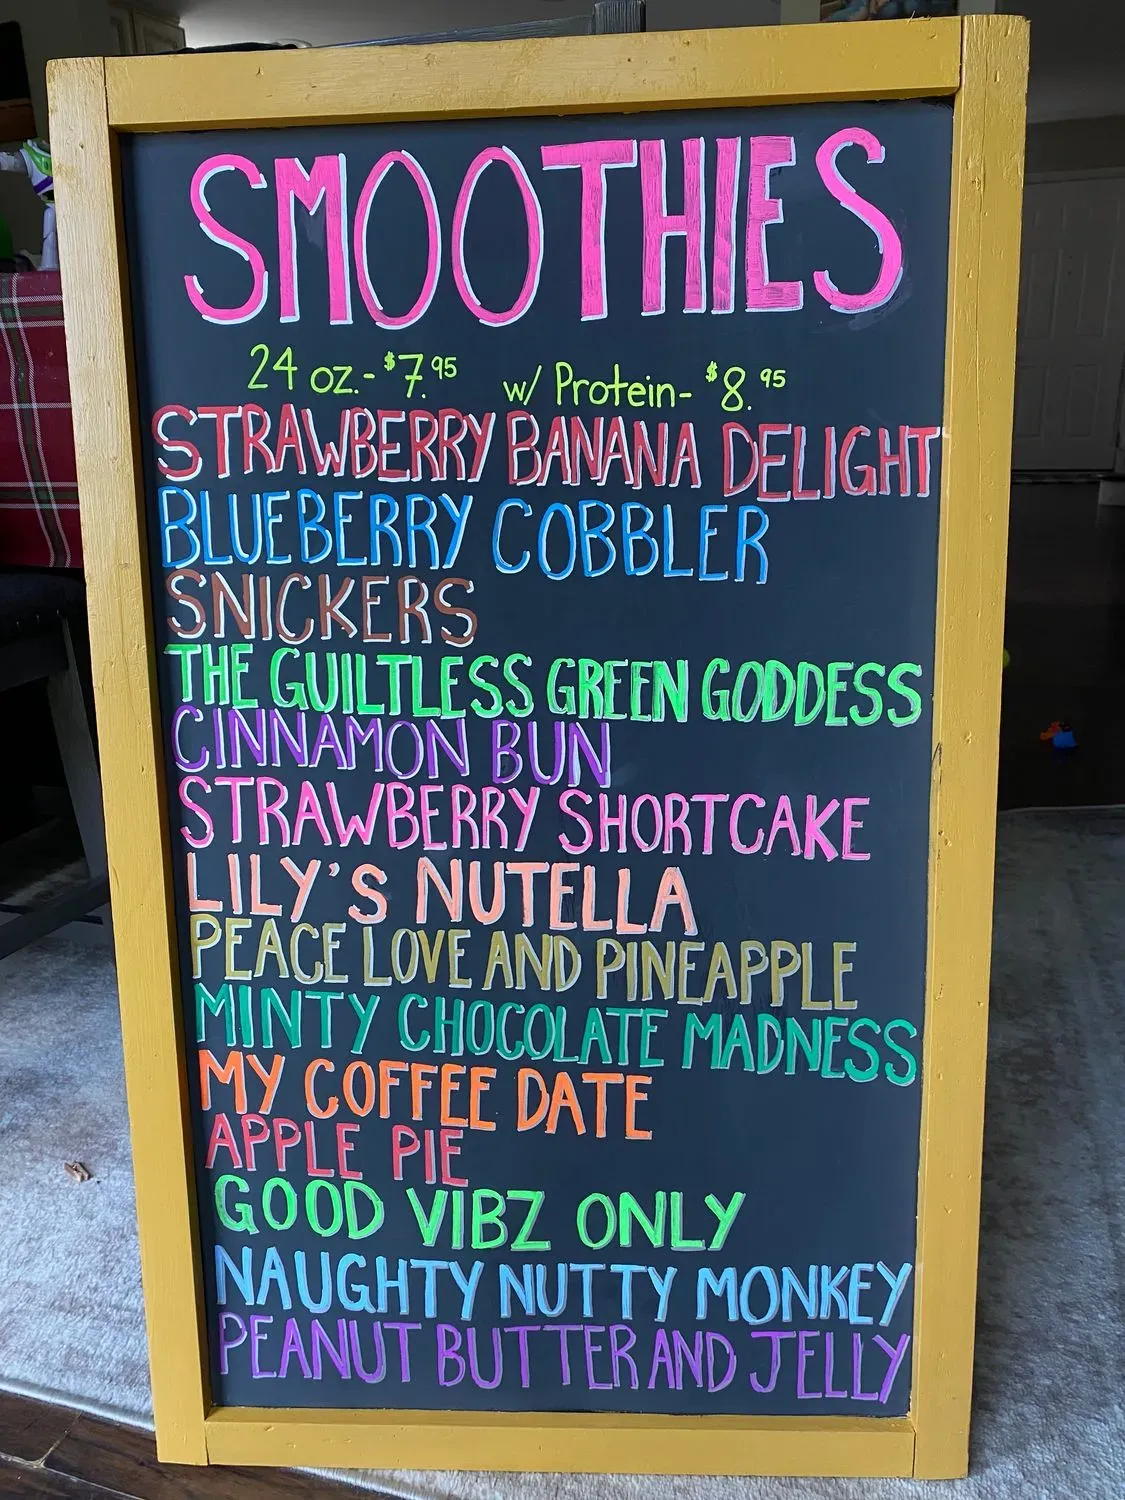 SMOOTHIES
24 oz.- $7.95 w/ Protein- $8.95
STRAWBERRY BANANA DELIGHT
BLUEBERRY COBBLER
SNICKERS
THE GUILTLESS GREEN GODDESS
CINNAMON BUN
STRAWBERRY SHORTCAKE
LILY'S NUTELLA
PEACE LOVE AND PINEAPPLE
MINTY CHOCOLATE MADNESS
MY COFFEE DATE
APPLE PIE
GOOD VIBZ ONLY
NAUGHTY NUTTY MONKEY
PEANUT BUTTER AND JELLY